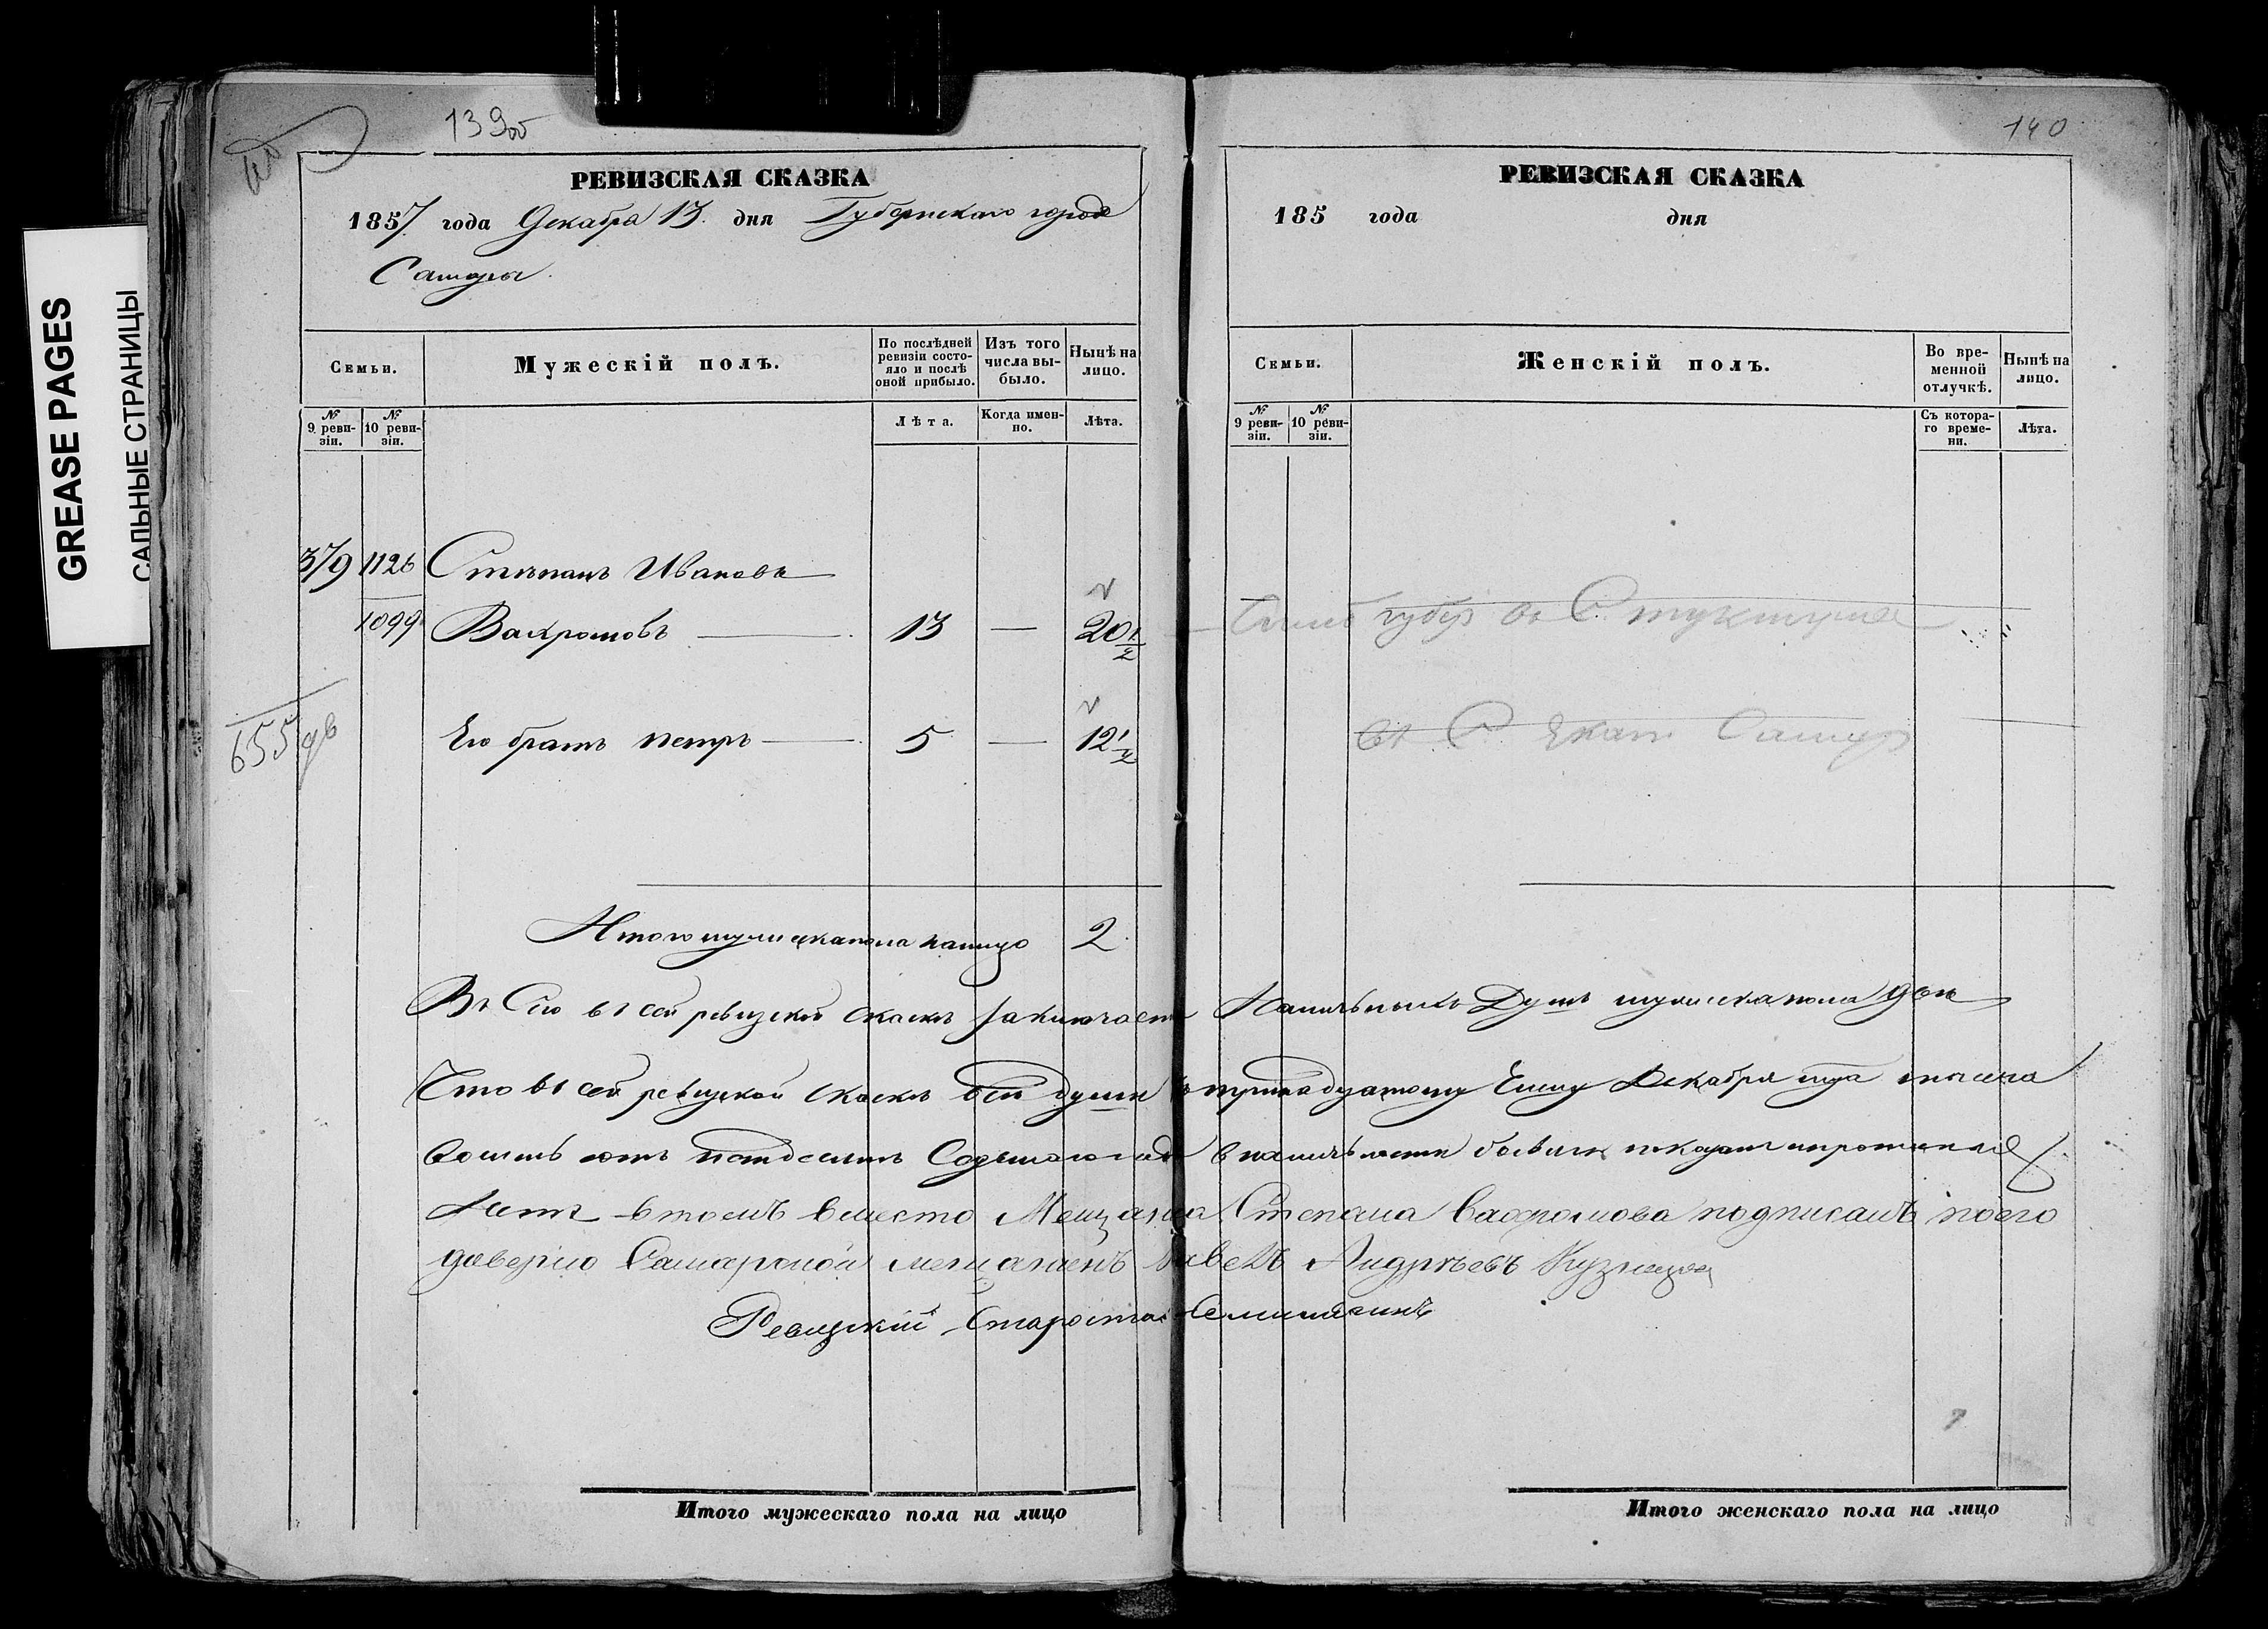 GREASE PAGES
САЛЬНЫЕ СТРАНИЦЫ
139об
РЕВИЗСКАЯ СКАЗКА
1857 года Декабря 13. дня Губернскаго города
Самары.
Семьи.
Мужескій полъ.
По послѣдней ревизіи состояло и послѣ оной прибыло.
Изъ того числа выбыло.
Нынѣ на лицо.
№ 9. ревизіи.
№ 10 ревизіи.
Лѣта.
Когда именно.
Лѣта.
379 1126 Степанъ Ивановъ
1099 Вахромовъ — 13 — 20 1/2
655
Его братъ петръ — 5 — 12 1/2
Итого мужескапола налицо 2
140
РЕВИЗСКАЯ СКАЗКА
185 года дня
Семьи.
Женскій полъ.
Во временной отлучкѣ.
Нынѣ на лицо.
№ 9 ревизіи.
№ 10 ревизіи.
Съ котораго времени.
Лѣта.
губер въ С
въ С Екат Самар
въ сей ревизской скаске заключаетъ Наличныхъ Душъ мужескапола две
Что въ сей ревизской скаске все души Декабря тысеча
восемь сотъ петдесятъ Седьмаго года
Нетъ втомъ вместо Мещанина Степана Вахромова подписалъ поего
доверию Самарской мещанинъ Павелъ Андреевъ Кузнецов
Ревизский Староста
Итого мужескаго пола на лицо
Итого женскаго пола на лицо